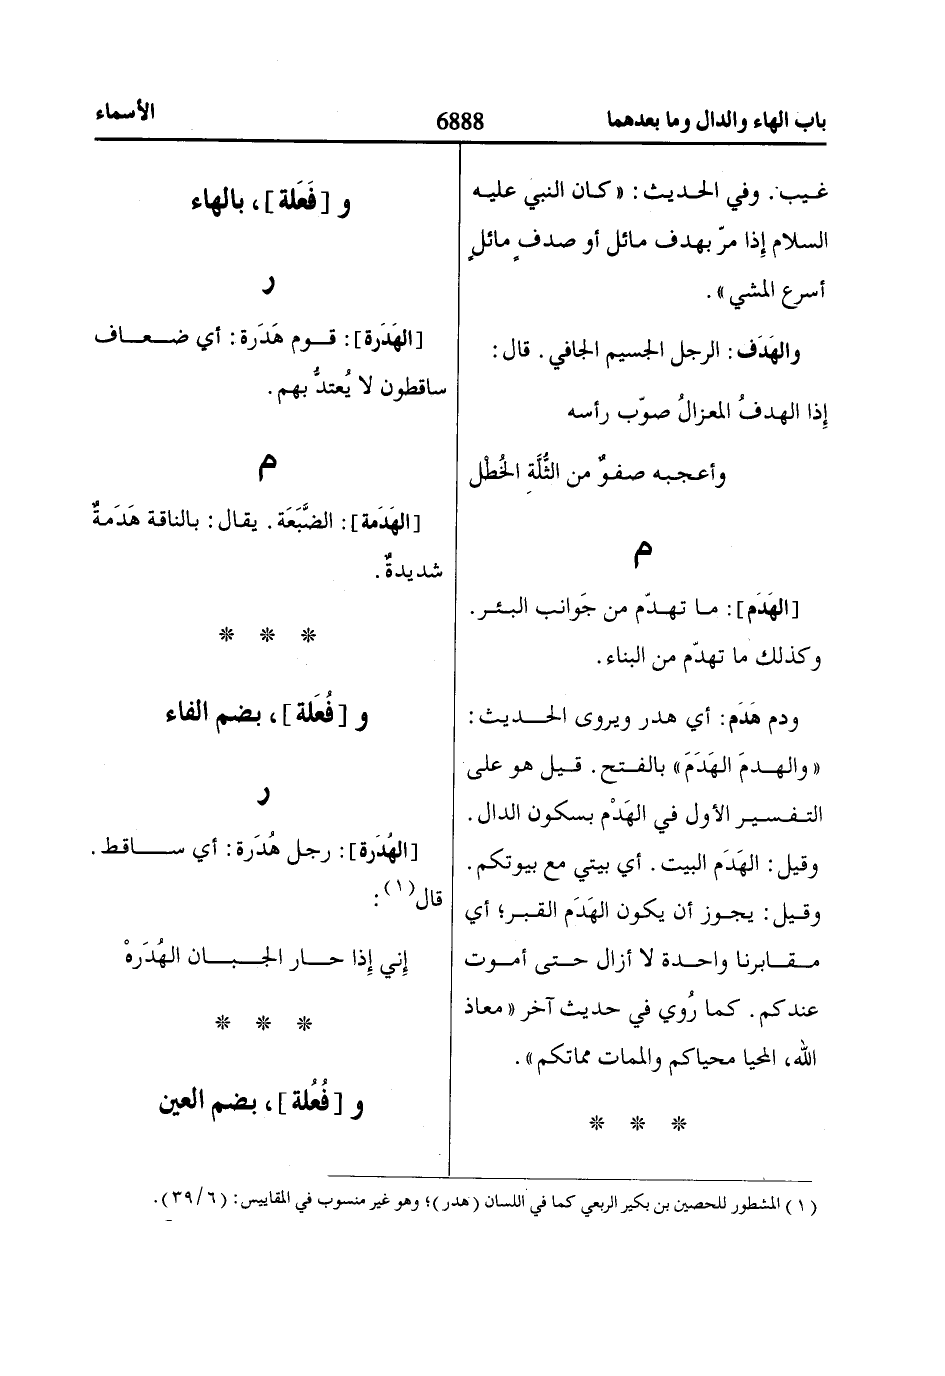 باب الهاء والدال وما بعدهما
6888
الأسماء
غيب. وفي الحديث: «كان النبي عليه
السلام إِذا مرّ بهدف مائل أو صدفٍ مائلٍ
أسرع المشي».
والهَدَف: الرجل الجسيم الجافي. قال:
إِذا الهدفُ المعزالُ صوّب رأسه
وأعجبه صفوٌ من الثُّلَّةِ الخُطْل
م
[الهَدَم]: ما تهدّم من جَوانب البئر.
وكذلك ما تهدّم من البناء.
ودم هَدَم: أي هدر ويروى الحديث:
«والهدمَ الهَدَمَ» بالفتح. قيل هو على
التفسير الأول في الهَدْم بسكون الدال.
وقيل: الهَدَم البيت. أي بيتي مع بيوتكم.
وقيل: يجوز أن يكون الهَدَم القبر؛ أي
مقابرنا واحدة لا أزال حتى أموت
عندكم. كما رُوي في حديث آخر «معاذ
الله، المحيا محياكم والممات مماتكم».
* * *
و [فَعَلة]، بالهاء
ر
[الهَدَرة]: قوم هَدَرة: أي ضعاف
ساقطون لا يُعتدُّ بهم.
م
[الهَدَمة]: الضَّبَعَة. يقال: بالناقة هَدَمةٌ
شديدةٌ.
* * *
و [فُعَلة]، بضم الفاء
ر
[الهُدَرة]: رجل هُدَرة: أي ساقط.
قال(١):
إِني إِذا حار الجبان الهُدَرهْ
* * *
و [فُعُلة]، بضم العين
(١) المشطور للحصين بن بكير الربعي كما في اللسان (هدر)؛ وهو غير منسوب في المقاييس: (٦/ ٣٩).